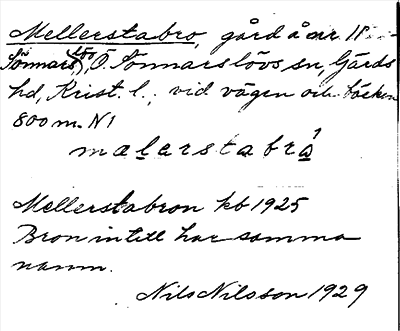 Mellerstabro, gård å nr 18
Sönnarslöv, Ö. Sönnarslövs sn, Gärds
hd, Krist. l., vid vägen och bäcken
800 m. N1
malerstabrà
Mellerstabron kb 1925
Bron intill har samma
namn.
Nils Nilsson 1929